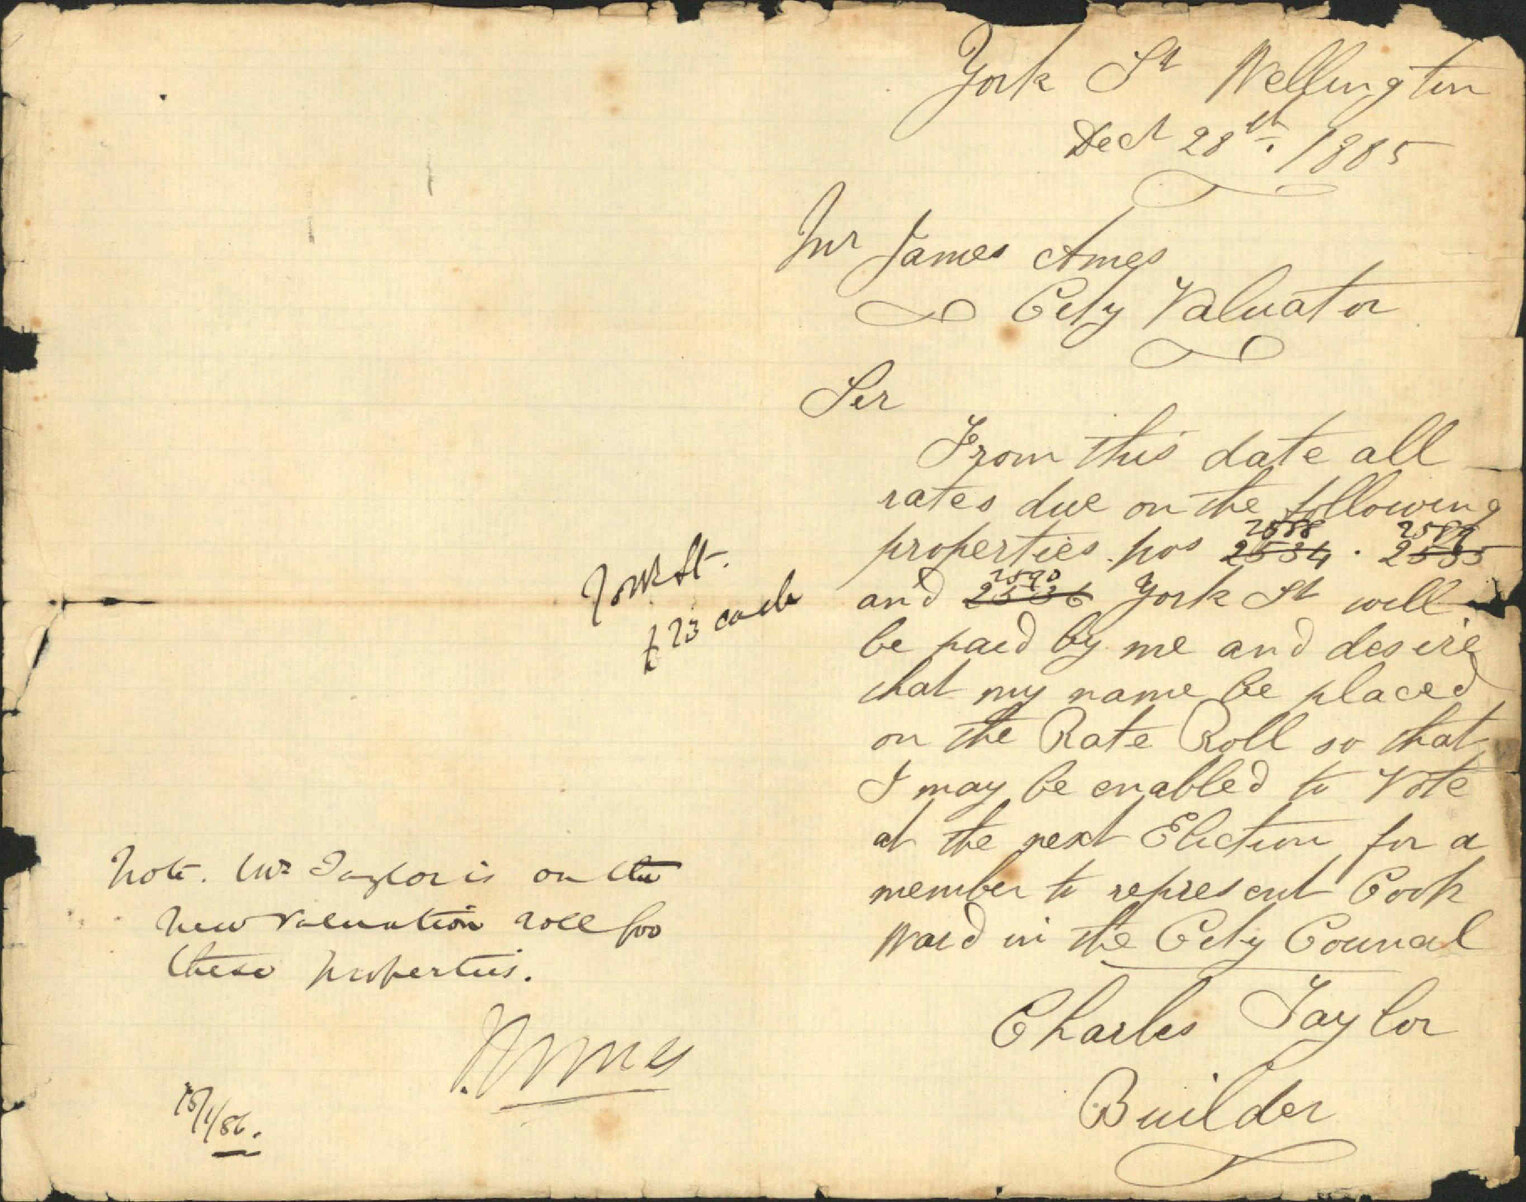 York St Wellington
Dect 28th. 1885
Mr James Ames
City Valuator
Sir
From this date all
rates due on the following
properties nos 2534 2588 . 2535 2589
and 2536 2590 York St will
be paid by me and desire
that my name be placed
on the Rate Roll so that
I may be enabled to Vote
at the next Election for a
member to represent Cook
Ward in the City Council
Charles Taylor
Builder
York St.
£23 each
Note. Mr Taylor is on the
new valuation roll for
these properties.
J Ames
15/1/86.